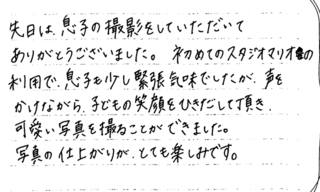 先日は、息子の撮影をしていただいて
ありがとうございました。 初めてのスタジオマリオの
利用で、息子も少し緊張気味でしたが、声を
かけながら、子どもの笑顔をひきだして頂き、
可愛い写真を撮ることができました。
写真の仕上がりが、とても楽しみです。